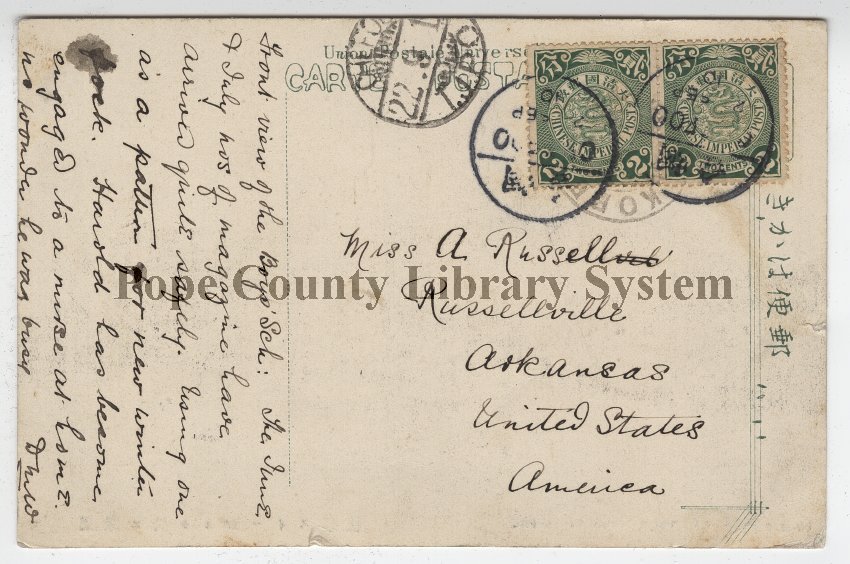 Union Postale Universe
CARTE POSTA
22.9.1
I.J.P.O.
CHINESE IMPERIAL POST
2 TWO CENTS 2
CHINESE IMPERIAL POST
2 TWO CENTS 2
Front view of the Boys' Sch: The June
& July nos of magazine have
arrived quite safely. Using one
as a pattern for new winter
frock. Harold has become
engaged to a nurse at home.
no wonder he was busy
DMW
Miss A. Russell
Russellville
Arkansas
United States
America
きかは便郵
Pope County Library System